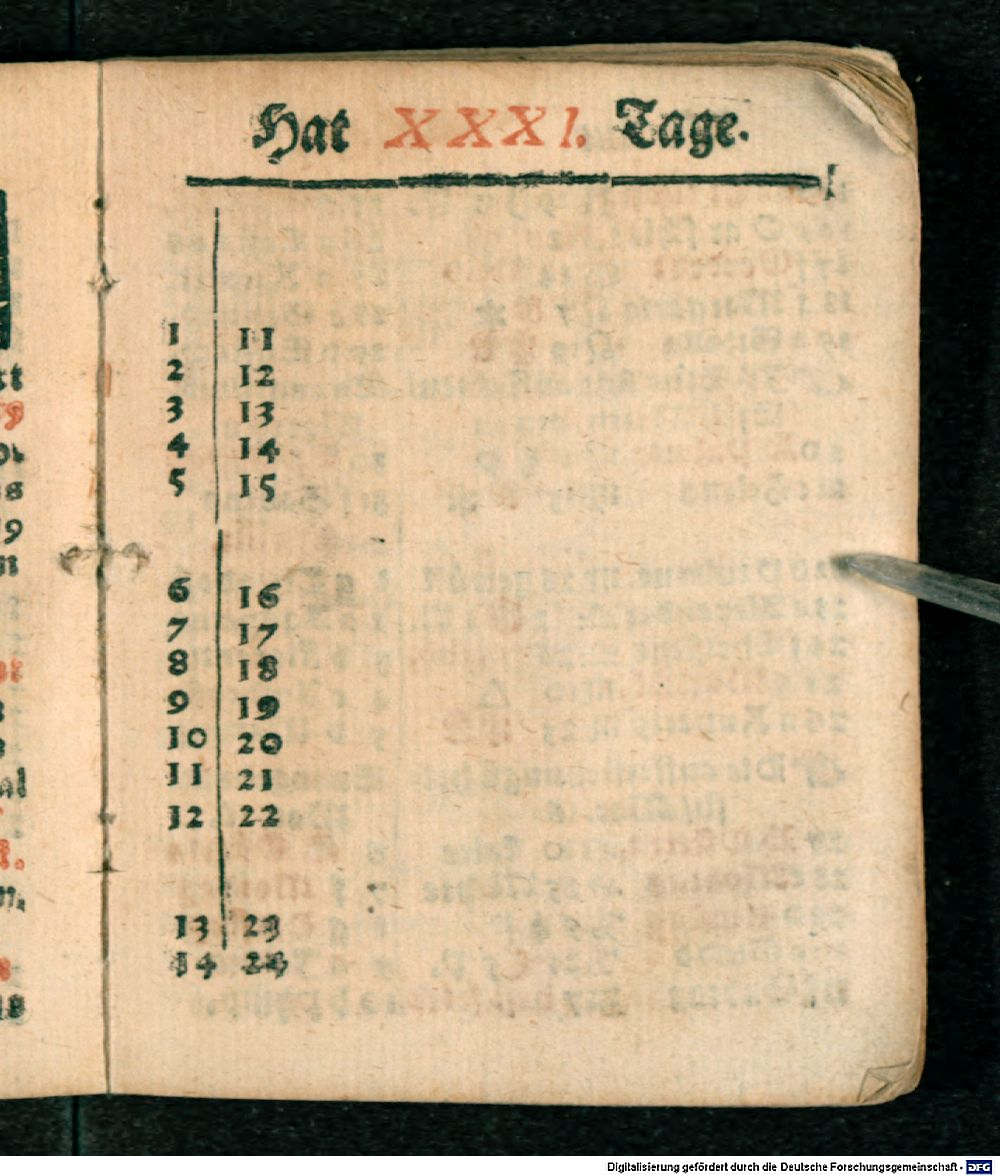 Hat XXXI. Tage.
1 11
2 12
3 13
4 14
5 15
6 16
7 17
8 18
9 19
10 20
11 21
12 22
13 23
14 24
Digitalisierung gefördert durch die Deutsche Forschungsgemeinschaft - DFG